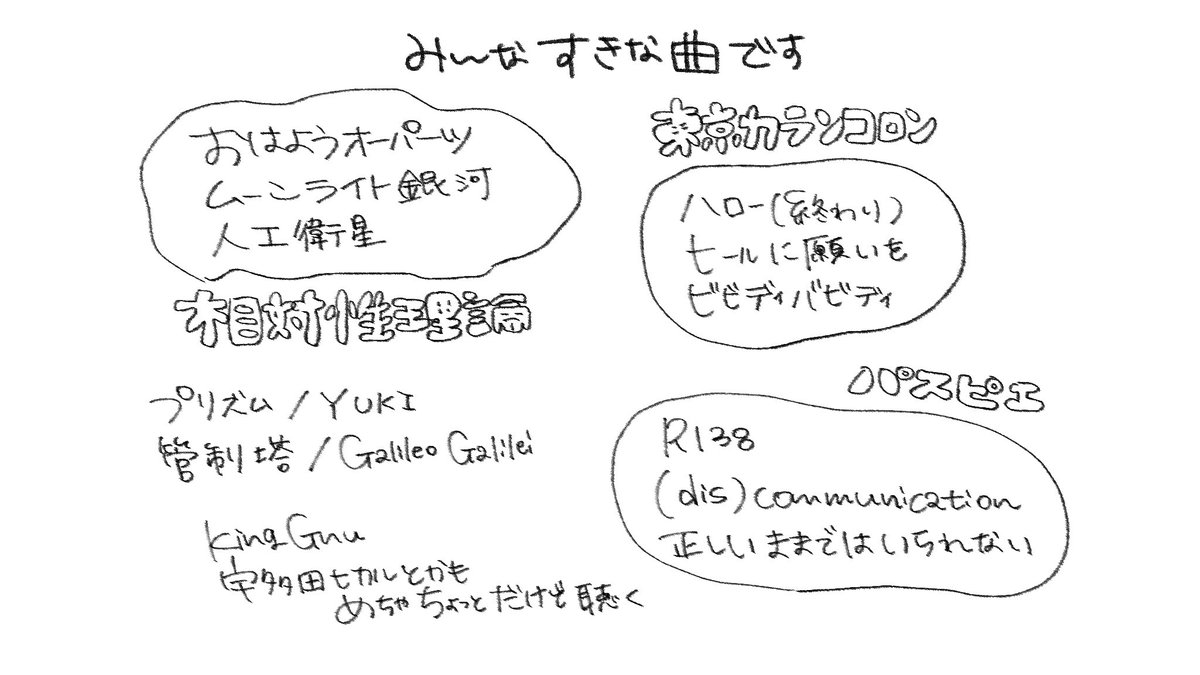 みんなすきな曲です
おはようオーパーツ
ムーンライト銀河
人工衛星
相対性理論
プリズム/YUKI
管制塔/Galileo Galilei
King Gnu
宇多田ヒカルとかも
めちゃちょっとだけど聴く
東京カランコロン
ハロー(終わり)
セールに願いを
ビビディバビディ
パスピエ
R138
(dis)communication
正しいままではいられない